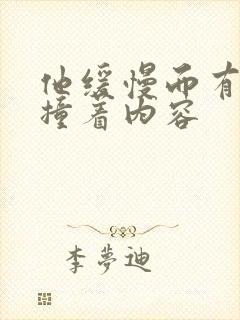 他缓慢而有
撞着内容
李梦迪